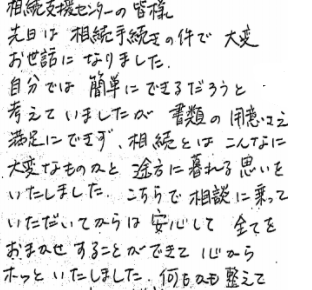 相続支援センターの皆様
先日は相続手続きの件で大変
お世話になりました.
自分では簡単にできるだろうと
考えていましたが 書類の用意さえ
満足にできず、相続とはこんなに
大変なものかと途方に暮れる思いを
いたしました. こちらで相談に乗って
いただいてからは安心して 全てを
おまかせすることができて 心から
ホッといたしました. 何もかも整えて